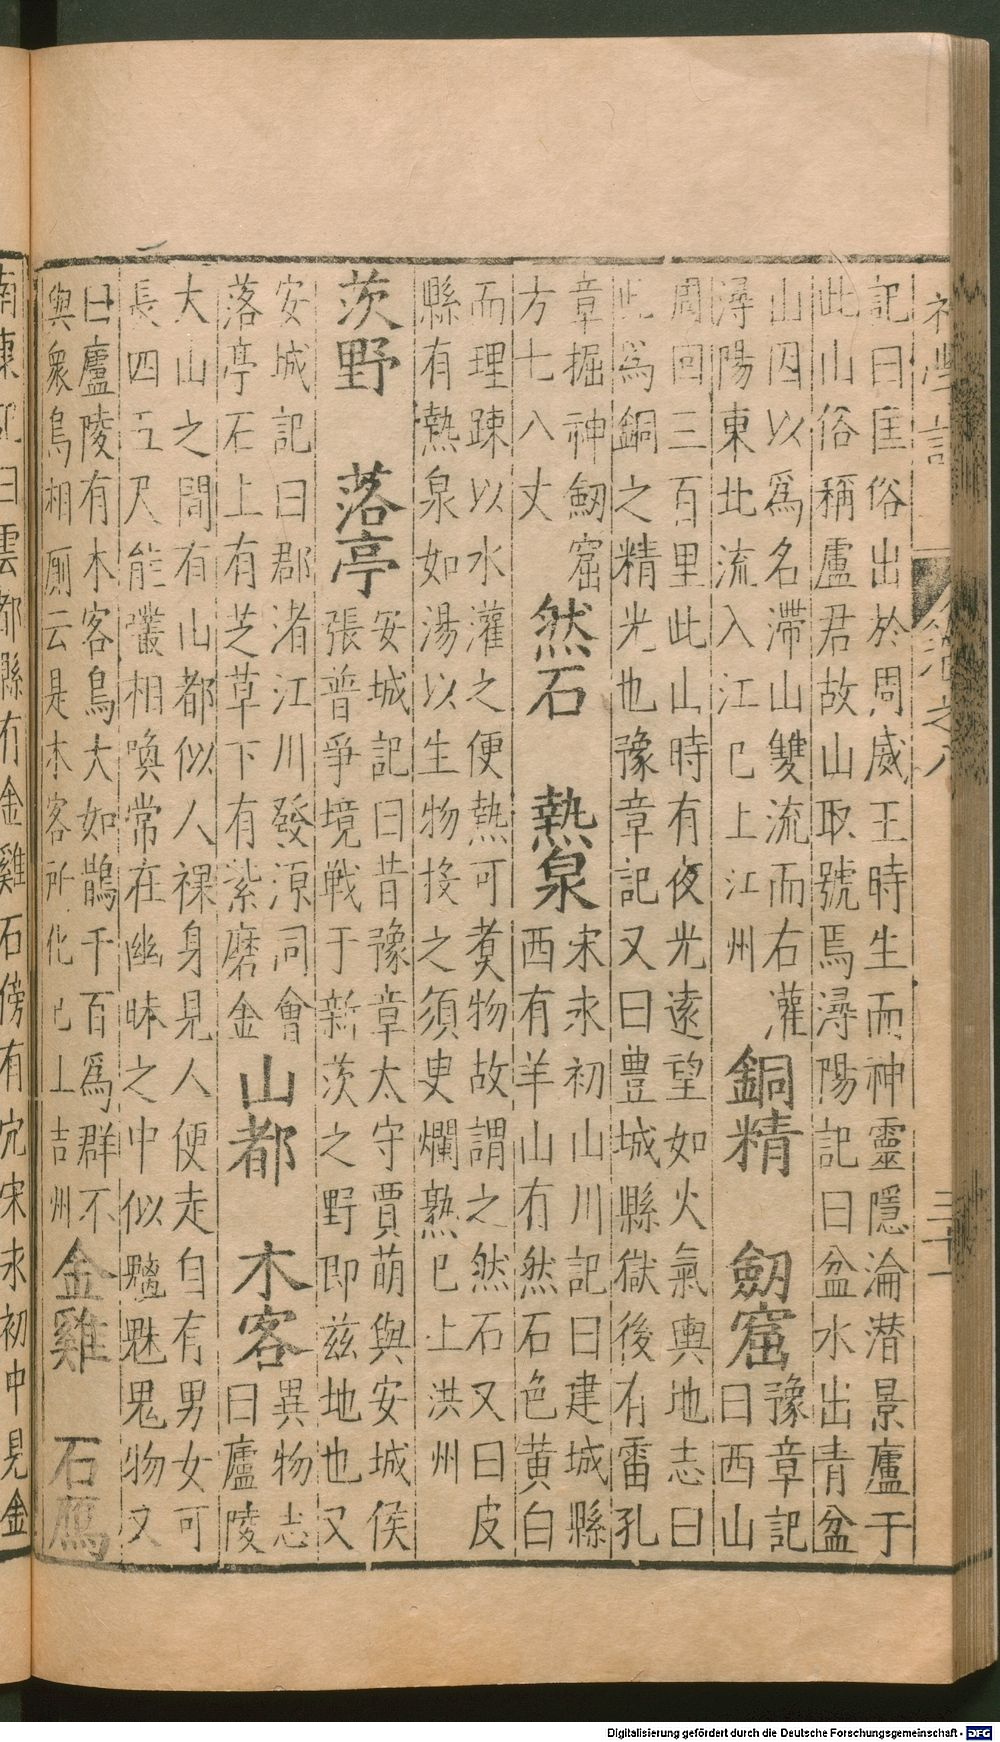 記曰匡俗出於周威王時生而神靈隱淪潜景廬于
此山俗稱廬君故山取號焉潯陽記曰盆水出青盆
山因以爲名滯山雙流而右灌
潯陽東北流入江已上江州
銅精　劒窟
豫章記
曰西山
周回三百里此山時有夜光遠望如火氣輿地志曰
此爲銅之精光也豫章記又曰豐城縣獄後有雷孔
章掘神劒窟
方七八丈
然石　熱泉
宋永初山川記曰建城縣
西有羊山有然石色黄白
而理踈以水灌之便熱可煑物故謂之然石又曰皮
縣有熱泉如湯以生物投之須臾爛熟已上洪州
茨野　落亭
安城記曰昔豫章太守賈萌與安城侯
張普爭境戦于新茨之野即兹地也又
安城記曰郡渚江川發源同會
落亭石上有芝草下有紫磨金
山都　木客
異物志
曰廬陵
大山之間有山都似人裸身見人便走自有男女可
長四五尺能叢相喚常在幽昧之中似魑魅鬼物又
曰廬陵有木客鳥大如鵲千百爲群不
與衆鳥相厠云是木客所化已上吉州
金雞　石鴈
南康記曰雲都縣有金雞石傍有穴宋永初中見金
Digitalisierung gefördert durch die Deutsche Forschungsgemeinschaft - DFG